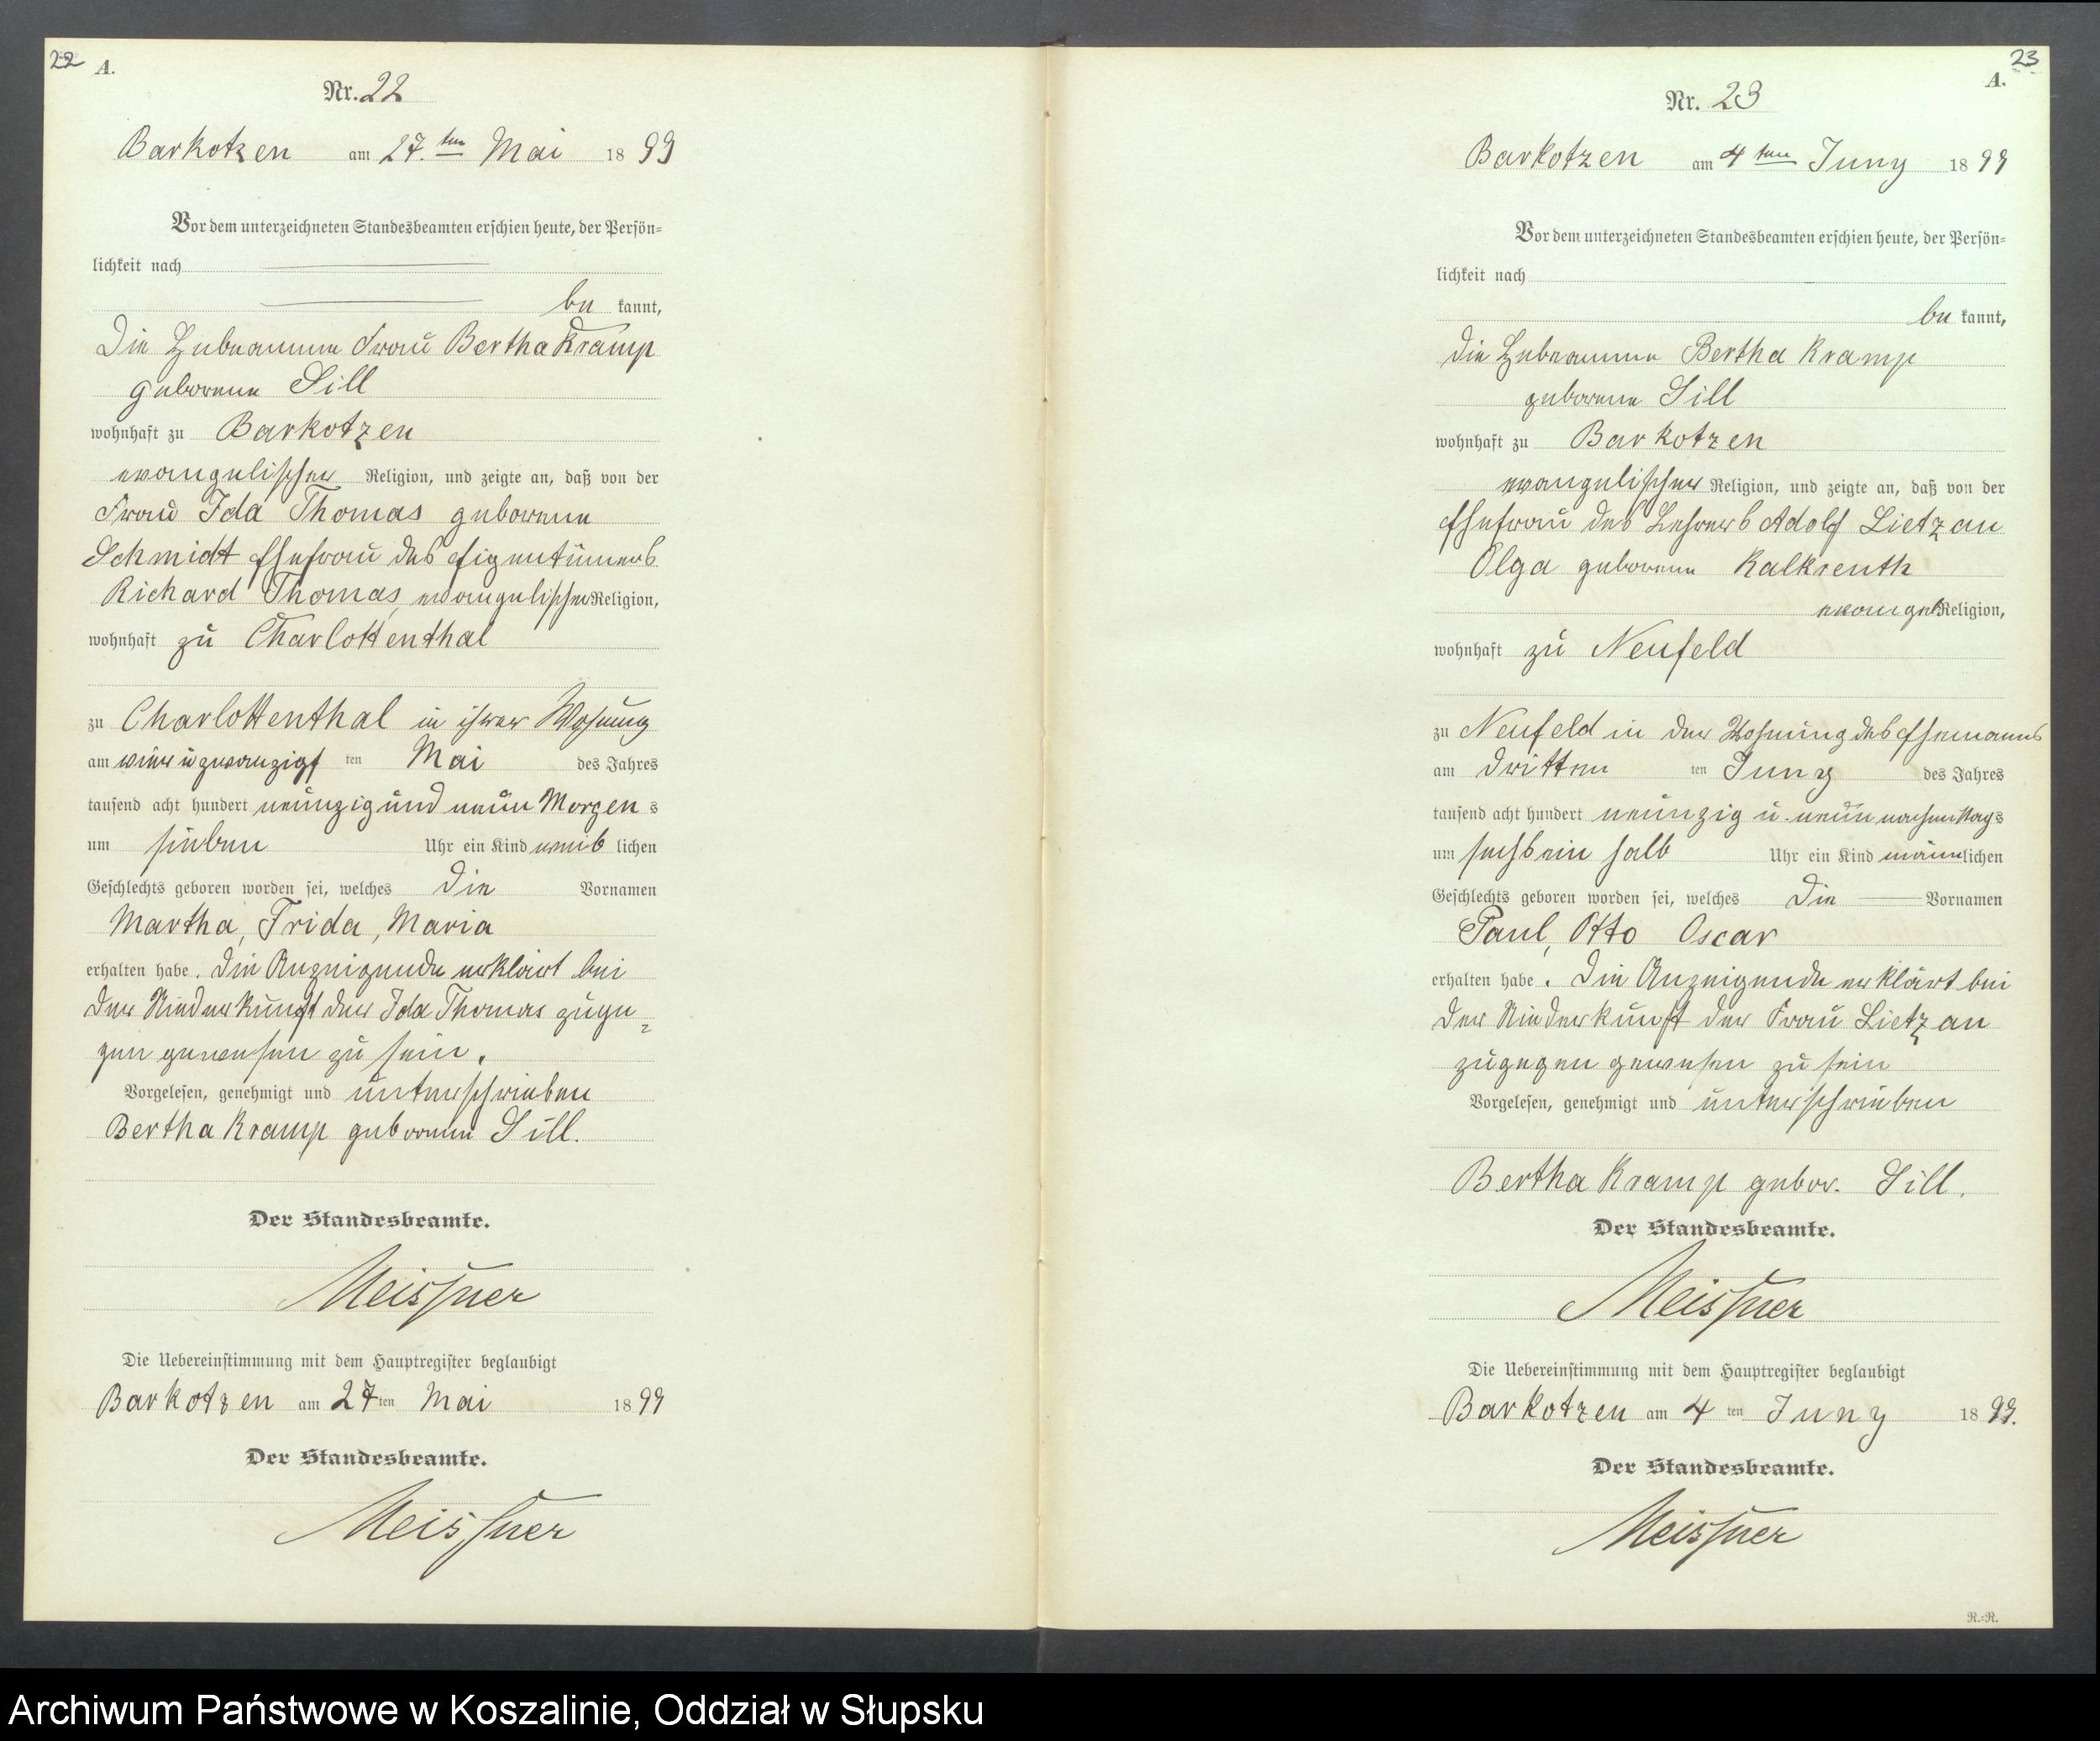 22 A.
Nr. 22
Barkotzen am 27. ten Mai 1899
Vor dem unterzeichneten Standesbeamten erschien heute, der Persön-
lichkeit nach
be kannt,
Die Hebeamme Frau Bertha Kramp
geborene Sill
wohnhaft zu Barkotzen
evangelischer Religion, und zeigte an, daß von der
Frau Ida Thomas geborene
Schmidt Ehefrau des Eigentümers
Richard Thomas, evangelischer Religion,
wohnhaft zu Charlottenthal
zu Charlottenthal in ihrer Wohnung
am vier u zwanzigst ten Mai des Jahres
tausend acht hundert neunzig und neun Morgen s
um sieben Uhr ein Kind weib lichen
Geschlechts geboren worden sei, welches die Vornamen
Martha, Frida, Maria
erhalten habe. Die Anzeigende erklärt bei
der Niederkunft der Ida Thomas zuge-
gen gewesen zu sein.
Vorgelesen, genehmigt und unterschrieben
Bertha Kramp geborene Sill.
Der Standesbeamte.
Meissner
Die Uebereinstimmung mit dem Hauptregister beglaubigt
Barkotzen am 27 ten Mai 1899
Der Standesbeamte.
Meissner
23
A.
Nr. 23
Barkotzen am 4 ten Juny 1899
Vor dem unterzeichneten Standesbeamten erschien heute, der Persön-
lichkeit nach
be kannt,
die Hebeamme Bertha Kramp
geborene Sill
wohnhaft zu Barkotzen
evangelischer Religion, und zeigte an, daß von der
Ehefrau des Lehrers Adolf Lietzau
Olga geborene Kalkreuth
evangel Religion,
wohnhaft zu Neufeld
zu Neufeld in der Wohnung des Ehemanns
am dritten ten Juny des Jahres
tausend acht hundert neunzig u. neun nachmittags
um sechs ein halb Uhr ein Kind männlichen
Geschlechts geboren worden sei, welches die Vornamen
Paul, Otto Oscar
erhalten habe. Die Anzeigende erklärt bei
der Niederkunft der Frau Lietzau
zugegen gewesen zu sein
Vorgelesen, genehmigt und unterschrieben
Bertha Kramp gebor. Sill.
Der Standesbeamte.
Meissner
Die Uebereinstimmung mit dem Hauptregister beglaubigt
Barkotzen am 4 ten Juny 1899.
Der Standesbeamte.
Meissner
R.-R.
Archiwum Państwowe w Koszalinie, Oddział w Słupsku